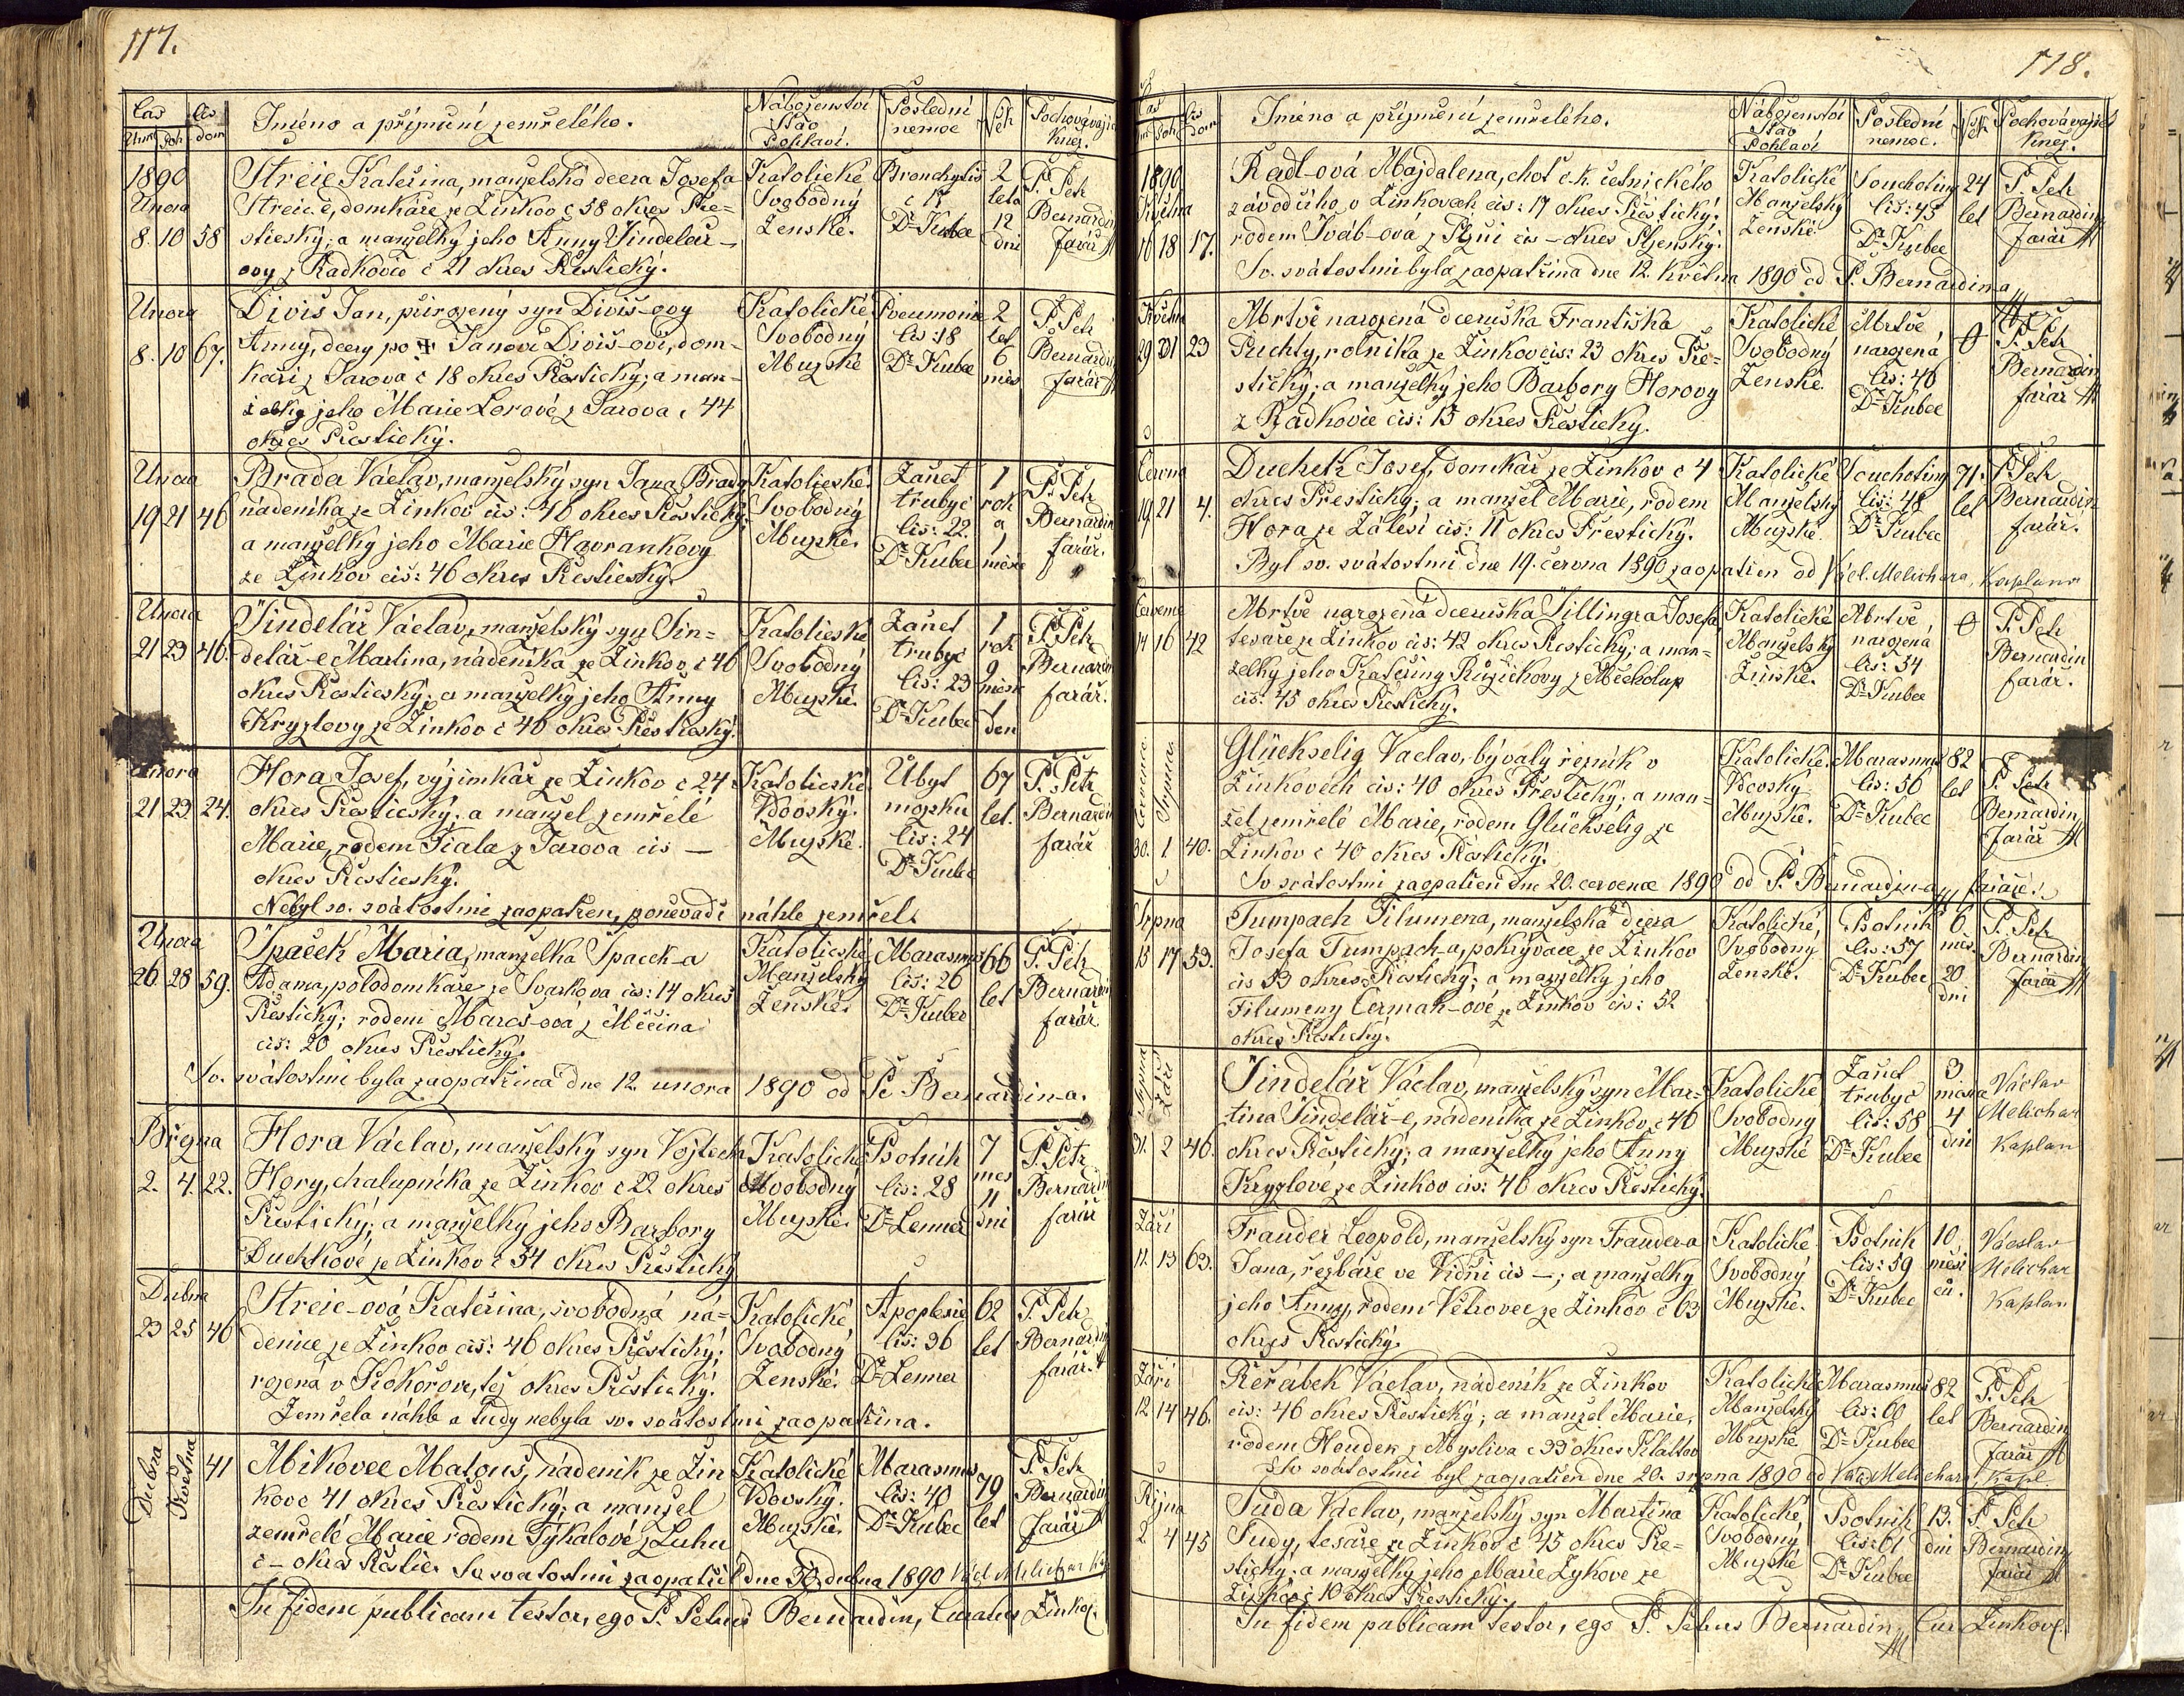 117.
Čas Čís
Úmr Poh dom
Jméno a příjmení zemřelého.
Náboženství Stav Pohlaví.
Poslední nemoc
Věk
Pochovávající Kněz.
1890 Února 8. 10 58
Streic Kateřina, manželská dcera Josefa
Streic-e, domkáře ze Žinkov č 58 okres Pře=
stický; a manželky jeho Anny Šindelář-
ovy z Radkovic č 21 okres Přestický.
Katolické Svobodný Ženské.
Bronchytis č 17 Dr Kubec
2 leta 12 dni
P. Petr Bernardin farář
Února 8. 10 67.
Diviš Jan, přirozený syn Diviš-ovy
Anny, dcery po ✝ Janovi Diviš-ovi, dom-
káři z Jarova č 18 okres Přestický; a man-
želky jeho Marie Lorové z Jarova č 44
okres Přestický.
Katolické Svobodný Mužské
Pneumonie čís: 18 Dr Kubec
2 let 6 měs
P. Petr Bernardin farář
Února 19 21 46
Brada Václav, manželský syn Jana Brady
nádeníka ze Žinkov čís: 46 okres Přestický;
a manželky jeho Marie Havrankovy
ze Žinkov čís: 46 okres Přestický.
Katolické Svobodný Mužské.
Zánět trubyc čís: 22. Dr Kubec
1 rok a 1 měsíc
P. Petr Bernardin farář.
Února 21 23 46.
Šindelář Václav, manželský syn Šin=
delář-e Martina, nádeníka ze Žinkov č 46
okres Přestický; a manželky jeho Anny
Kryzlovy ze Žinkov č 46 okres Přestický.
Katolické Svobodný Mužské.
Zánět trubyc čís: 23 Dr Kubec
1 rok 9 měsíc 1 den
P. Petr Bernardin farář.
Února 21 23. 24.
Hora Josef, výjimkář ze Žinkov č 24
okres Přestický; a manžel zemřelé
Marie, rodem Fiala z Jarova čís —
okres Přestický.
Nebyl sv. svátostmi zaopatřen, poněvadž náhle zemřel.
Katolické Vdovský. Mužské.
Úbyt mozku čís: 24 Dr Kubec
67 let.
P. Petr Bernardin farář
Února 26. 28 59.
Špaček Maria, manželka Špaček-a
Adama, polodomkáře ze Svarkova čís: 14 okres
Přestický; rodem Mareš-ová z Měčína
čís: 20 okres Přestický.
Sv. svátostmi byla zaopatřena dne 12. února 1890 od P. Bernardin-a.
Katolické Manželský Ženské.
Marasmus čís: 26 Dr Kubec
66 let
P. Petr Bernardin farář.
Března 2. 4. 22.
Hora Václav, manželský syn Vojtěcha
Hory, chalupníka ze Žinkov č 22 okres
Přestický; a manželky jeho Barbory
Duchkové ze Žinkov č 34 okres Přestický
Katolické Svobodný Mužské.
Psotník čís: 28 Dr Lenner
7 mes 11 dní
P. Petr Bernardin farář
Dubna 23 25 46
Streic-ová Kateřina, svobodná ná-
denice ze Žinkov čís: 46 okres Přestický;
rozena v Kokořově, též okres Přestický.
Zemřela náhle a tudy nebyla sv. svátostmi zaopatřina.
Katolické Svobodný Ženské.
Apoplexie čís: 36 Dr Lenner
62 let
P. Petr Bernardin farář.
Dubna Května 41
Mikovec Matouš, nádeník ze Žin
kov č 41 okres Přestický; a manžel
zemřelé Marie rodem Týkalové z Luhu
č - okres Přestic. Sv svatostmi zaopatřil dne 30. dubna 1890 Václ Melichar
Katolické Vdovský. Mužské.
Marasmus čís: 40 Dr Kubec
79 let
P. Petr Bernardin farář
In fidem publicam testor, ego P. Petrus Bernardin, Curatus Žinkov.
118.
Čas Čís
Poh dom
Jméno a příjmení zemřelého.
Náboženství Stav Pohlaví
Poslední nemoc.
Věk
Pochovávající Kněz.
1890 Května 16 18 17.
Radl-ová Majdalena, choť c.k. četnického
závodčího, v Žinkovech čís: 17 okres Přestický;
rodem Šváb-ová z Plzni čís - okres Plzenský.
Sv. svátostmi byla zaopatřina dne 12. Května 1890 od P. Bernardina
Katolické Manželský Ženské
Souchotiny čís: 45 Dr Kubec
24 let
P. Petr Bernardin farář
Května 29 31 23
Mrtvě narozená dceruška Františka
Puchty, rolníka ze Žinkov čís: 23 okres Pře-
stický; a manželky jeho Barbory Horovy
z Radkovic čís: 15 okres Přestický.
Katolické Svobodný Ženské.
Mrtvě narozená čís: 46 Dr Kubec
0
P. Petr Bernardin farář
Června 19 21 4.
Duchek Josef, domkář ze Žinkov č 4
okres Přestický; a manžel Marie, rodem
Hora ze Zálesí čís: 11 okres Přestický.
Byl sv. svátostmi dne 19. června 1890 zaopatřen od Václ. Melichara, Kaplana
Katolické Manželský Mužské.
Souchotiny čís: 48 Dr Kubec
71. let
P. Petr Bernardin farář.
Července 14 16 42
Mrtvě narozená dceruška Šillingra Josefa,
tesaře ze Žinkov čís: 42 okres Přestický; a man=
želky jeho Kateřiny Růžičkovy z Měcholup
čís: 45 okres Přestický.
Katolické Manželský Ženské.
Mrtvě narozená čís: 54 Dr Kubec
0
P. Petr Bernardin farář.
Července Srpna 30. 1 40.
Glückselig Vaclav, bývalý řezník v
Žinkovech čís: 40 okres Přestický; a man=
žel zemřelé Marie, rodem Glückselig ze
Žinkov č 40 okres Přestický.
Sv svátostmi zaopatřen dne 20. července 1890 od P. Bernardin-a, faráře.
Katolické. Vdovský Mužské.
Marasmus čís: 56 Dr Kubec
82 let
P. Petr Bernardin farář
Srpna 15 17 53.
Tumpach Filumena, manželská dcera
Josefa Tumpach-a, pokrývače, ze Žinkov
čís 53 okres Přestický; a manželky jeho
Filumeny Čermák-ové ze Žinkov čís: 52
okres Přestický.
Katolické, Svobodný Ženské.
Psotník čís: 57 Dr Kubec
6 měs. 20 dni
P. Petr Bernardin farář
Srpna Září 31. 2 46.
Šindelář Václav, manželský syn Mar=
tina Šindelář-e, nádeníka ze Žinkov č 46
okres Přestický; a manželky jeho Anny
Kryzlové ze Žinkov čís: 46 okres Přestický.
Katolické Svobodný Mužské
Zánět trubyc čís: 58 Dr Kubec
3 měsíce 4 dni
Václav Melichar Kaplan
Září 11. 13 63.
Frauder Leopold, manželský syn Frauder-a
Jana, řezbáře ve Vídni čís —; a manželky
jeho Anny, rodem Větrovec ze Žinkov č 63
okres Přestický.
Katolické Svobodný Mužské.
Psotník čís: 59 Dr Kubec
10 měsí ců.
Václav Melichar Kaplan
Září 12 14 46.
Řeřábek Václav, nádeník ze Žinkov
čís: 46 okres Přestický; a manžel Marie,
rodem Houdek z Mysliva č 33 okres Klattov
Sv svátostmi byl zaopatřen dne 20. srpna 1890 od Vác. Melichara, Kapl.
Katolické Manželský Mužské
Marasmus čís: 60 Dr Kubec
82 let
P. Petr Bernardin farář
Října 2 4 45
Suda Václav, manželský syn Martina
Sudy, tesaře ze Žinkov č 45 okres Pře-
stický; a manželky jeho Marie Zykove ze
Žinkov č 10 okres Přestický.
Katolické, Svobodný, Mužské
Psotník čís: 61 Dr Kubec
13. dni
P. Petr Bernardin farář
In fidem publicam testor, ego P. Petrus Bernardin, Cur Žinkov.